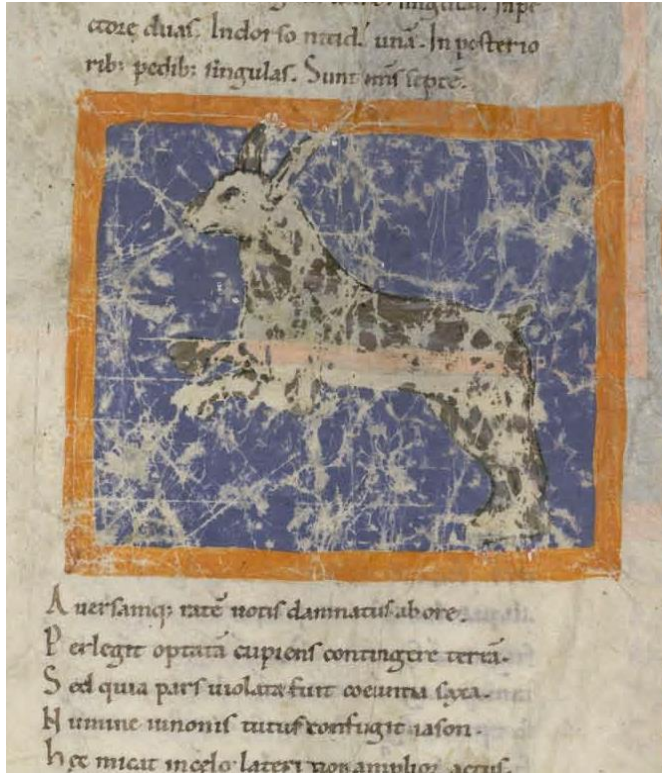 ctore duas. In dorso nitid. unā. In posterio
rib; pedib; singulas. Sunt oms septē.
A uersamq; ratē uotis damnatus ab ore.
P erlegit optatā cupiens contingere terrā.
S ed quia pars uiolata fuit coeuntia saxa.
N umine iunonis tutus confugit iason.
h ęc micat in celo lateri non amplior actus.